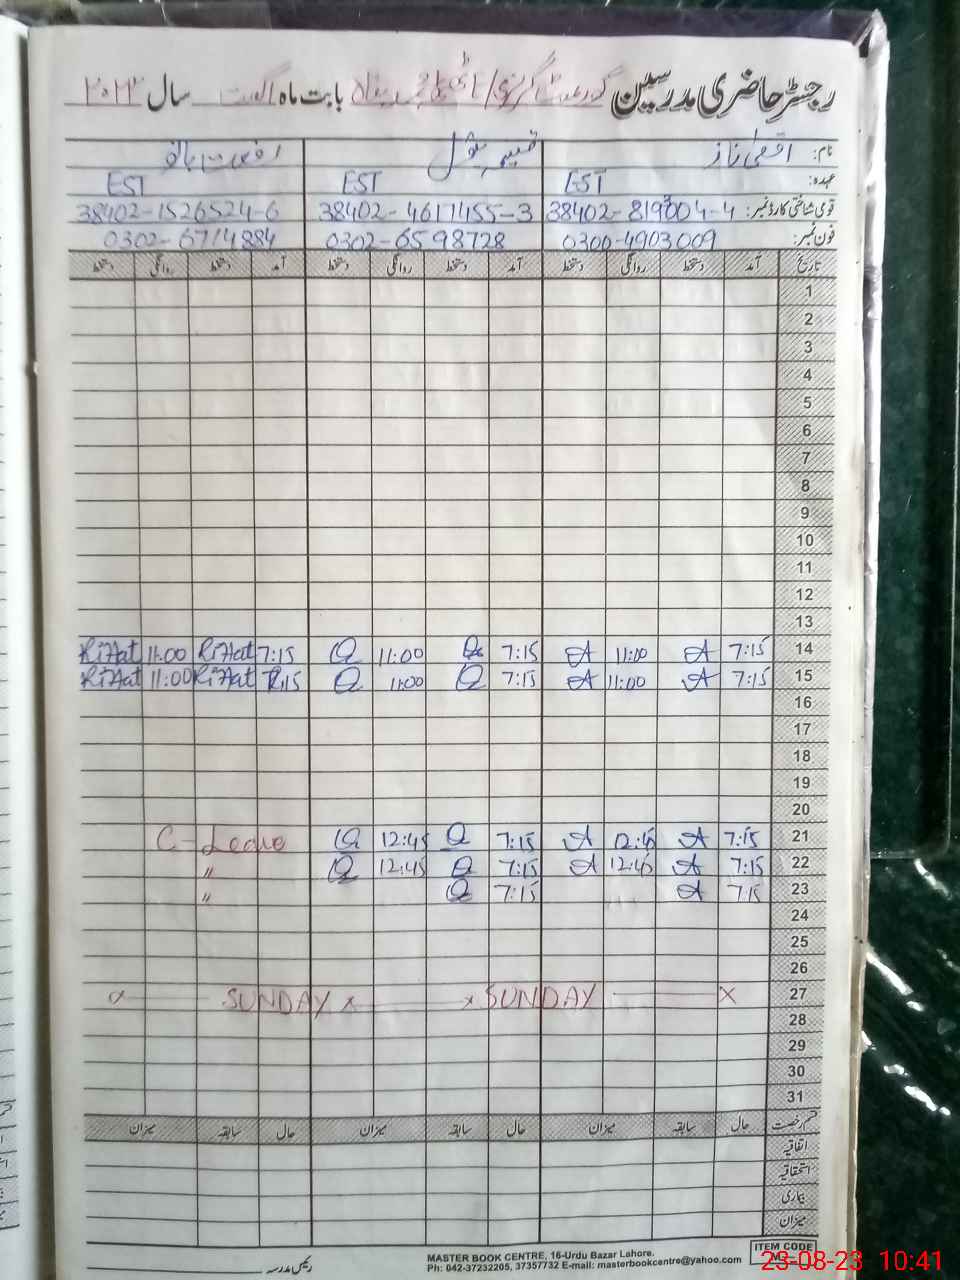 رجسٹر حاضری مدرسین گورنمنٹ گرلز بابت ماہ اگست سال ۲۰۲۳
نام: اقصیٰ ناز نسیم بتول رفعت بانو
عہدہ: EST EST EST
قومی شناختی کارڈ نمبر: 38402-4617455-3 38402-1526524-6
فون نمبر: 0300-4903009 0302-6598728 0302-6714884
تاریخ آمد دستخط روانگی دستخط آمد دستخط روانگی دستخط آمد دستخط روانگی دستخط
1
2
3
4
5
6
7
8
9
10
11
12
13
14 7:15 A 11:00 A 7:15 Q 11:00 Q 7:15 Riffat 11:00 Riffat
15 7:15 A 11:00 A 7:15 Q 11:00 Q 7:15 Riffat 11:00 Riffat
16
17
18
19
20
21 7:15 A 12:45 A 7:15 Q 12:45 Q C-Leave
22 7:15 A 12:45 A 7:15 Q 12:45 Q "
23 7:15 A 7:15 Q "
24
25
26
27 x SUNDAY x x SUNDAY x
28
29
30
31
قسم رخصت حال سابقہ میزان حال سابقہ میزان حال سابقہ میزان
اتفاقیہ
استحقاقیہ
بیماری
میزان
رئیس مدرسہ
MASTER BOOK CENTRE, 16-Urdu Bazar Lahore.
Ph: 042-37232205, 37357732 E-mail: masterbookcentre@yahoo.com
ITEM CODE
23-08-23 10:41